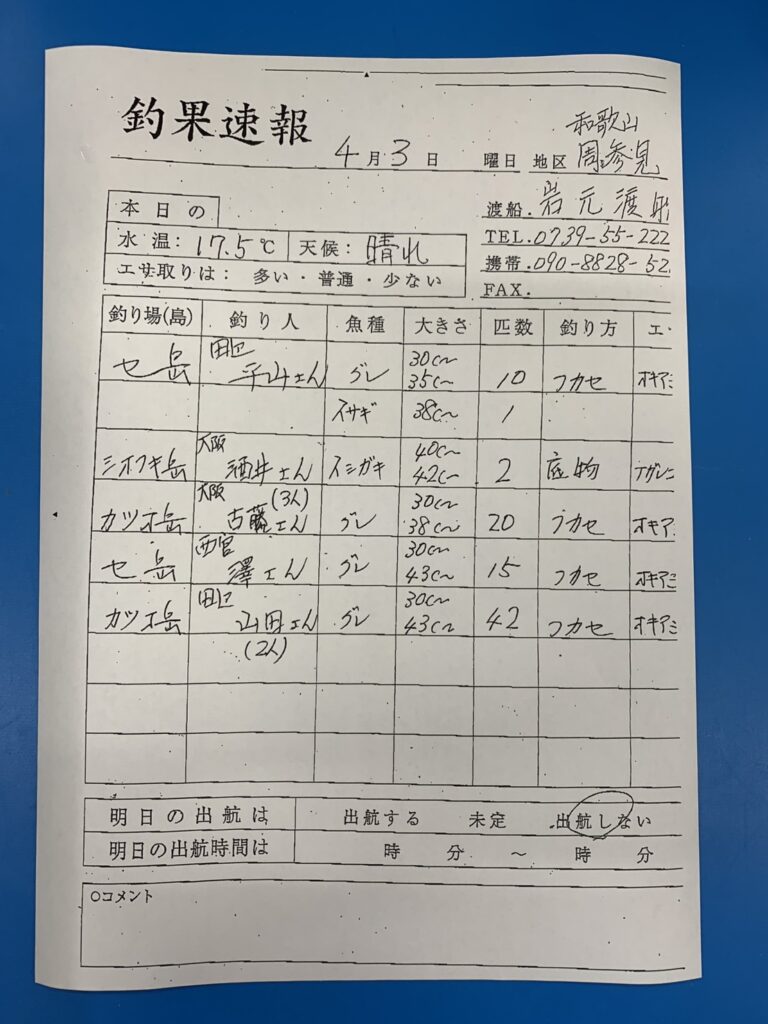 釣果速報
4月3日 曜日 地区 和歌山 周参見
渡船. 岩元渡船
TEL. 0739-55-222
携帯. 090-8828-52
FAX.
本日の
水温: 17.5℃ 天候: 晴れ
エサ取りは: 多い・普通・少ない
釣り場(島) 釣り人 魚種 大きさ 匹数 釣り方 エ
セ岳 田辺 平山さん グレ 30cm~35cm 10 フカセ オキアミ
38cm 1
シオフキ岳 大阪 酒井さん イシガキ 40cm~42cm 2 底物
カツオ岳 大阪 古藤さん (3人) グレ 30cm~38cm 20 フカセ オキア
セ岳 西宮 澤さん グレ 30cm~43cm 15 フカセ オキアミ
カツオ岳 田辺 山田さん (2人) グレ 30cm~43cm 42 フカセ オキアミ
明日の出航は 出航する 未定 出航しない
明日の出航時間は 時 分 ~ 時 分
○コメント